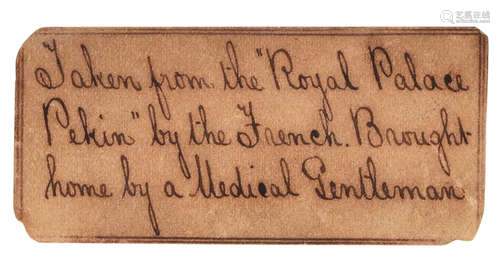 Taken from the "Royal Palace
Pekin" by the French. Brought
home by a Medical Gentleman